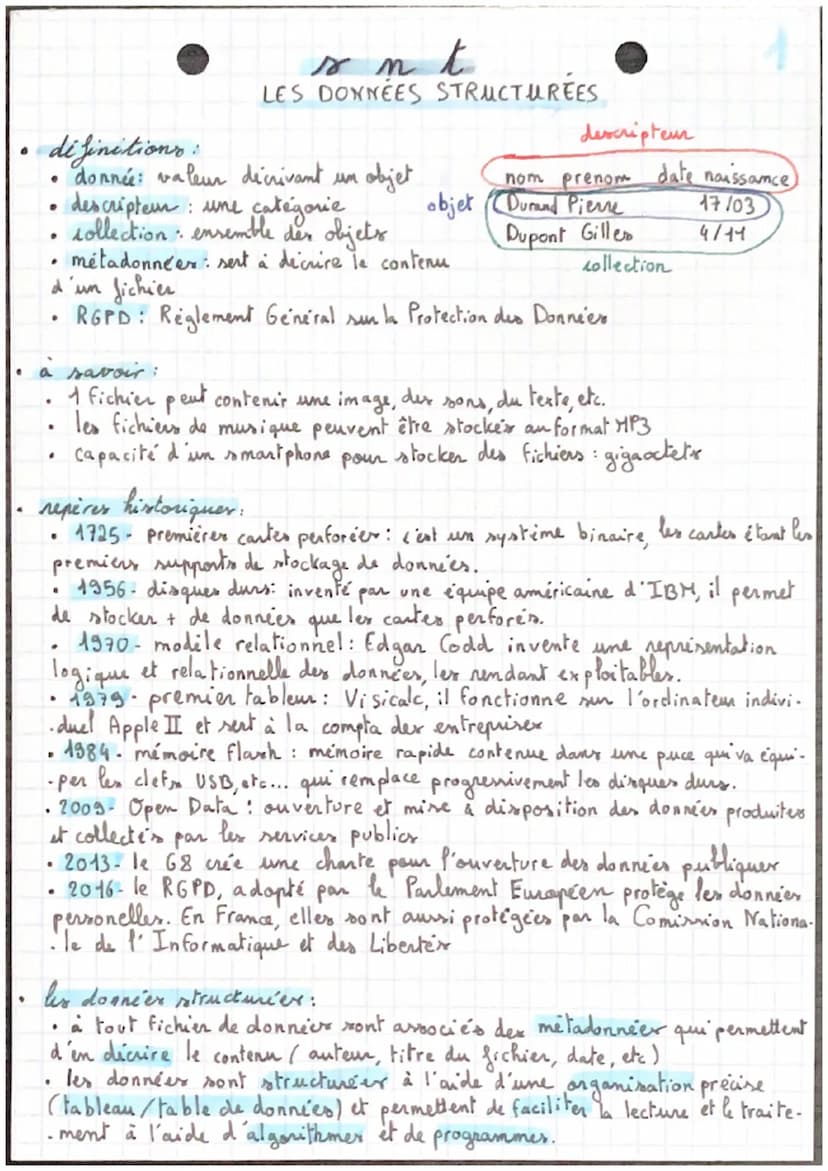 1
snt
LES DONNÉES STRUCTURÉES
descripteur
• définitions :
nom prenom date naissance
• donnée: valeur décrivant un objet
objet
Durand Pierre 17/03
• descripteur : une catégorie
Dupont Gilles 4/11
• collection : ensemble des objets
collection
• métadonnées : sert à décrire le contenu
d'un fichier
• RGPD : Règlement Général sur la Protection des Données
• à savoir :
• 1 fichier peut contenir une image, des sons, du texte, etc.
• les fichiers de musique peuvent être stockés au format MP3
• capacité d'un smartphone pour stocker des fichiers : gigaoctets
• repères historiques :
• 1725 - premières cartes perforées : c'est un système binaire, les cartes étant les
premiers supports de stockage de données.
• 1956 - disques durs: inventé par une équipe américaine d'IBM, il permet
de stocker + de données que les cartes perforés.
• 1970 - modèle relationnel : Edgar Codd invente une représentation
logique et relationnelle des données, les rendant exploitables.
• 1979 - premier tableur : Visicalc, il fonctionne sur l'ordinateur indivi-
-duel Apple II et sert à la compta des entreprises
• 1984 - mémoire flash : mémoire rapide contenue dans une puce qui va équi-
-per les clefs USB, etc... qui remplace progressivement les disques durs.
• 2009 - Open Data : ouverture et mise à disposition des données produites
et collectés par les services publics
• 2013 - le G8 crée une charte pour l'ouverture des données publiques
• 2016 - le RGPD, adopté par le Parlement Européen protège les données
personelles. En France, elles sont aussi protégées par la Comission Nationa-
-le de l'Informatique et des Libertés
• les données structurées :
• à tout fichier de données sont associés des métadonnées qui permettent
d'en décrire le contenu (auteur, titre du fichier, date, etc)
• les données sont structurées à l'aide d'une organisation précise
(tableau/table de données) et permettent de faciliter la lecture et le traite-
-ment à l'aide d'algorithmes et de programmes.